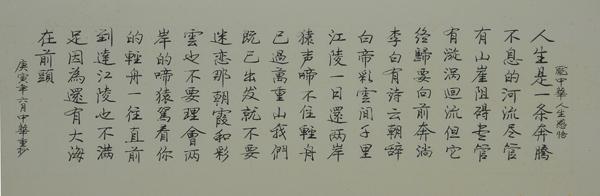 人生是一条奔騰
不息的河流尽管
有山崖阻碍尽管
有漩涡回流但它
终歸要向前奔淌
李白有诗云朝辞
白帝彩雲间千里
江陵一日還两岸
猿声啼不住輕舟
已過萬重山我們
既已出发就不要
迷恋那朝霞和彩
雲也不要理會两
岸的啼猿篤着你
的輕舟一往直前
到達江陵也不满
足因為還有大海
在前頭
中華人生感悟
庚寅年六月中華重抄